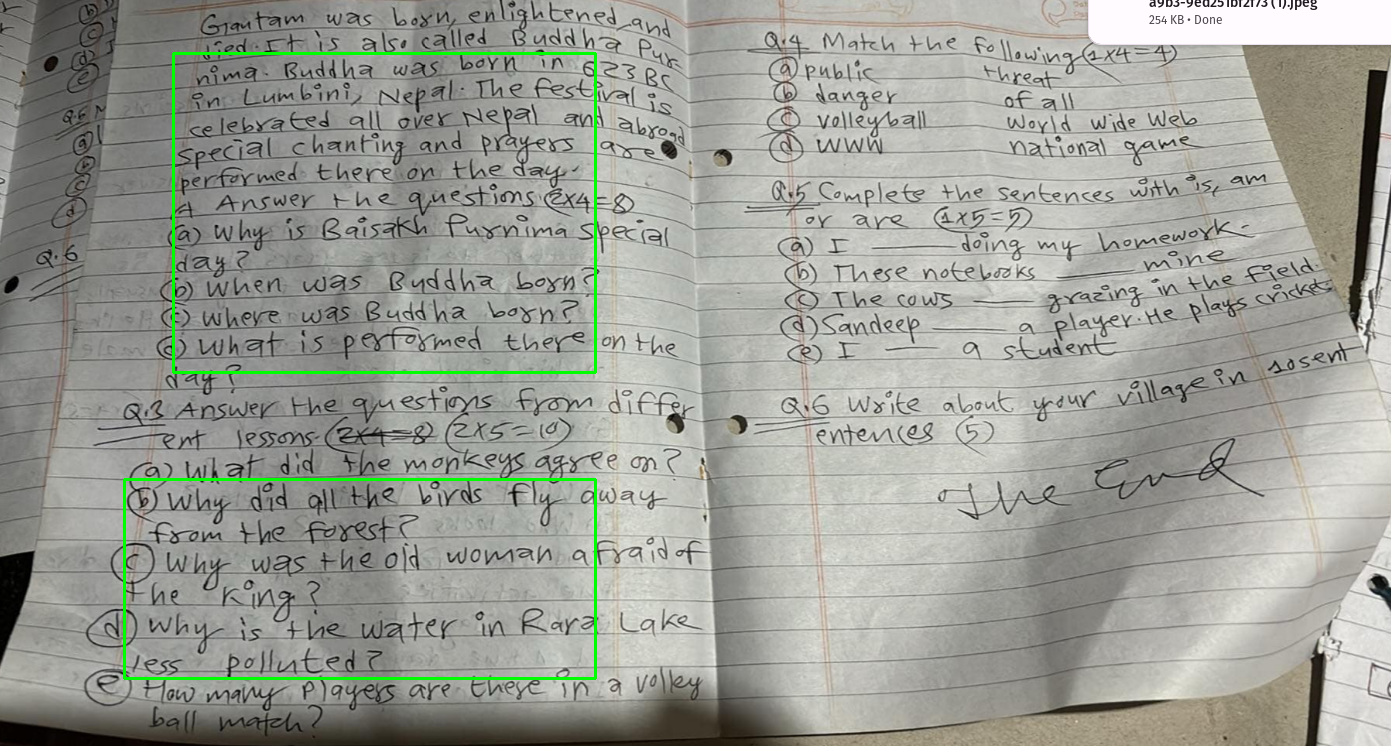 Gautam was born, enlightened and
died. It is also called Buddha Pur
nima. Buddha was born in 623 BC
in Lumbini, Nepal. The festival is
celebrated all over Nepal and abroad
special chanting and prayers are
performed there on the day.
A Answer the questions (2x4=8)
(a) Why is Baisakh Purnima special
day?
(b) When was Buddha born?
(c) Where was Buddha born?
(d) What is performed there on the
day?
Q.3 Answer the questions from differ
ent lessons. (2x4=8) (2x5=10)
(a) What did the monkeys agree on?
(b) Why did all the birds fly away
from the forest?
(c) Why was the old woman afraid of
the King?
(d) Why is the water in Rara Lake
less polluted?
(e) How many players are these in a volley
ball match?
Q.6
a9b3-9ed251bf2f73 (1).jpeg
254 KB • Done
Q.4 Match the following (1x4=4)
(a) public threat
(b) danger of all
(c) volleyball World Wide Web
(d) WWW national game
Q.5 Complete the sentences with is, am
or are (1x5=5)
(a) I ____ doing my homework.
(b) These notebooks ____ mine
(c) The cows ____ grazing in the field.
(d) Sandeep ____ a player. He plays cricket.
(e) I ____ a student
Q.6 Write about your village in 10 sent
entences (5)
The End